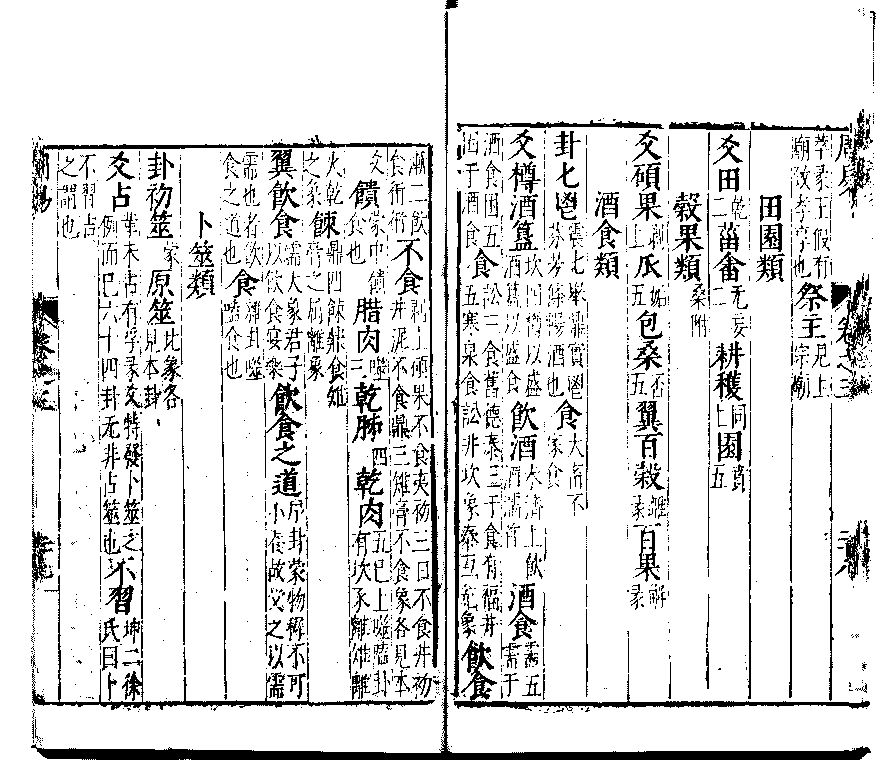 萃彖王假有廟致孝享也祭主見上宗廟
田園類
爻田乾二菑畬无妄二耕穫同上園賁五
穀果類桑附
爻碩果剝上瓜姤五包桑否五翼百穀離彖百果解彖
酒食類
卦匕鬯震匕舉鼎實鬯芬芳條暢酒也食大畜不家食
爻樽酒簋坎四樽以盛酒簋以盛食飲酒未濟上飲酒濡首酒食需五需于
酒食困五困于酒食食訟三食舊德泰三于食有福井五寒泉食訟井坎象泰互兌象飲食
漸二飲食衎衎不食剝上碩果不食夷初三日不食井初井泥不食鼎三雉膏不食象各見本
爻饋家中饋食也腊肉噬三乾胏四乾肉五已上噬嗑卦有坎承離雉離
火乾之象餗鼎四餗鼎食雉膏之屬離象
翼飲食需大象君子以飲食宴樂飲食之道序卦蒙物穉不可不養故受之以需
需也者飲食之道也食雜卦噬嗑食也
卜筮類
卦初筮蒙原筮比象各見本卦
爻占革未占有孚彖爻特發卜筮之例而已六十四卦无非占筮也不習坤二徐氏曰卜
不習吉之謂也